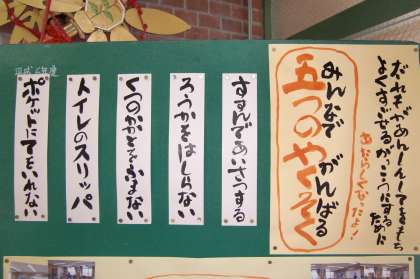 だれもがあんしんしてきもち
よくすごせるがっこうにするために
あたらしくなったよ!
みんなで がんばる
五つのやくそく
すすんであいさつする
ろうかをはしらない
くつのかかとをふまない
トイレのスリッパ
ポケットにてをいれない
平成16年度